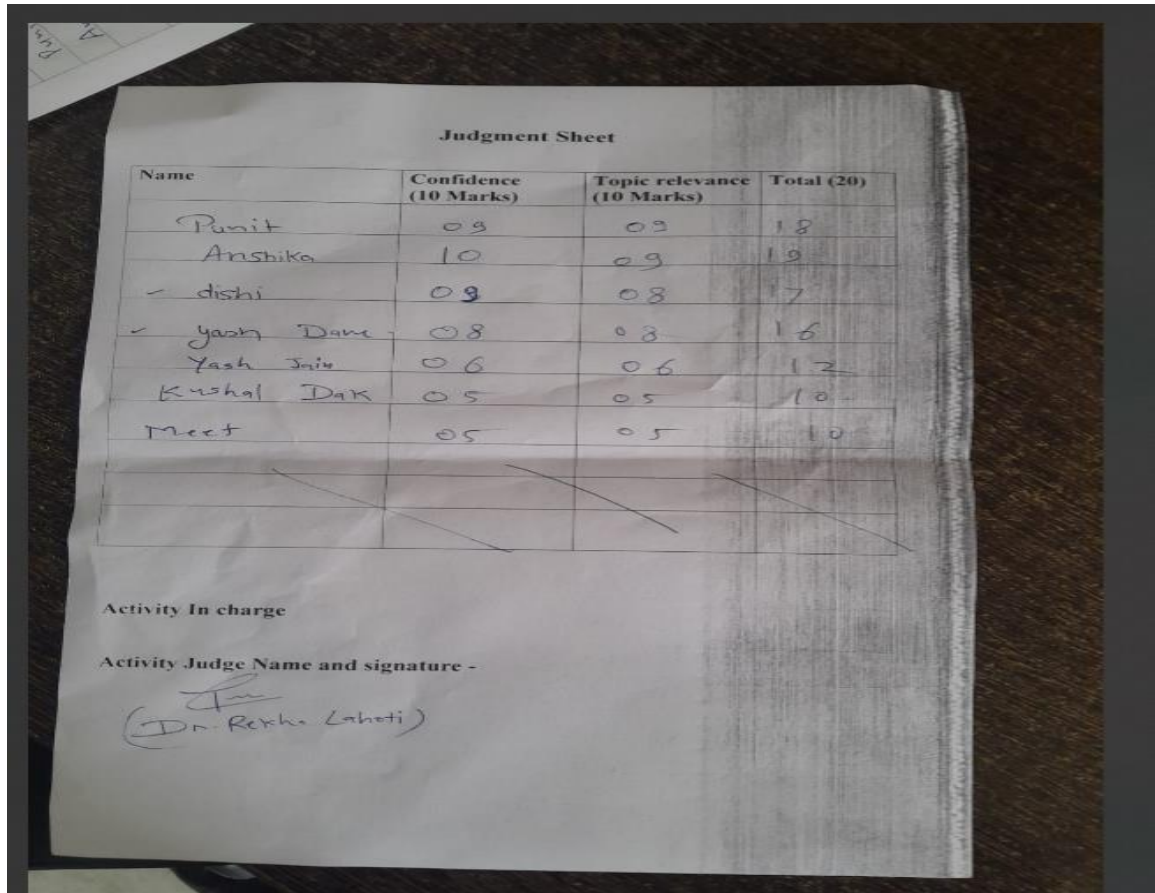 Judgment Sheet
Name Confidence (10 Marks) Topic relevance (10 Marks) Total (20)
Punit 09 09 18
Anshika 10 09 19
dishi 09 08 17
yash Dave 08 08 16
Yash Jain 06 06 12
Kushal Dak 05 05 10
Meet 05 05 10
Activity In charge
Activity Judge Name and signature -
(Dr. Rekha Lahoti)